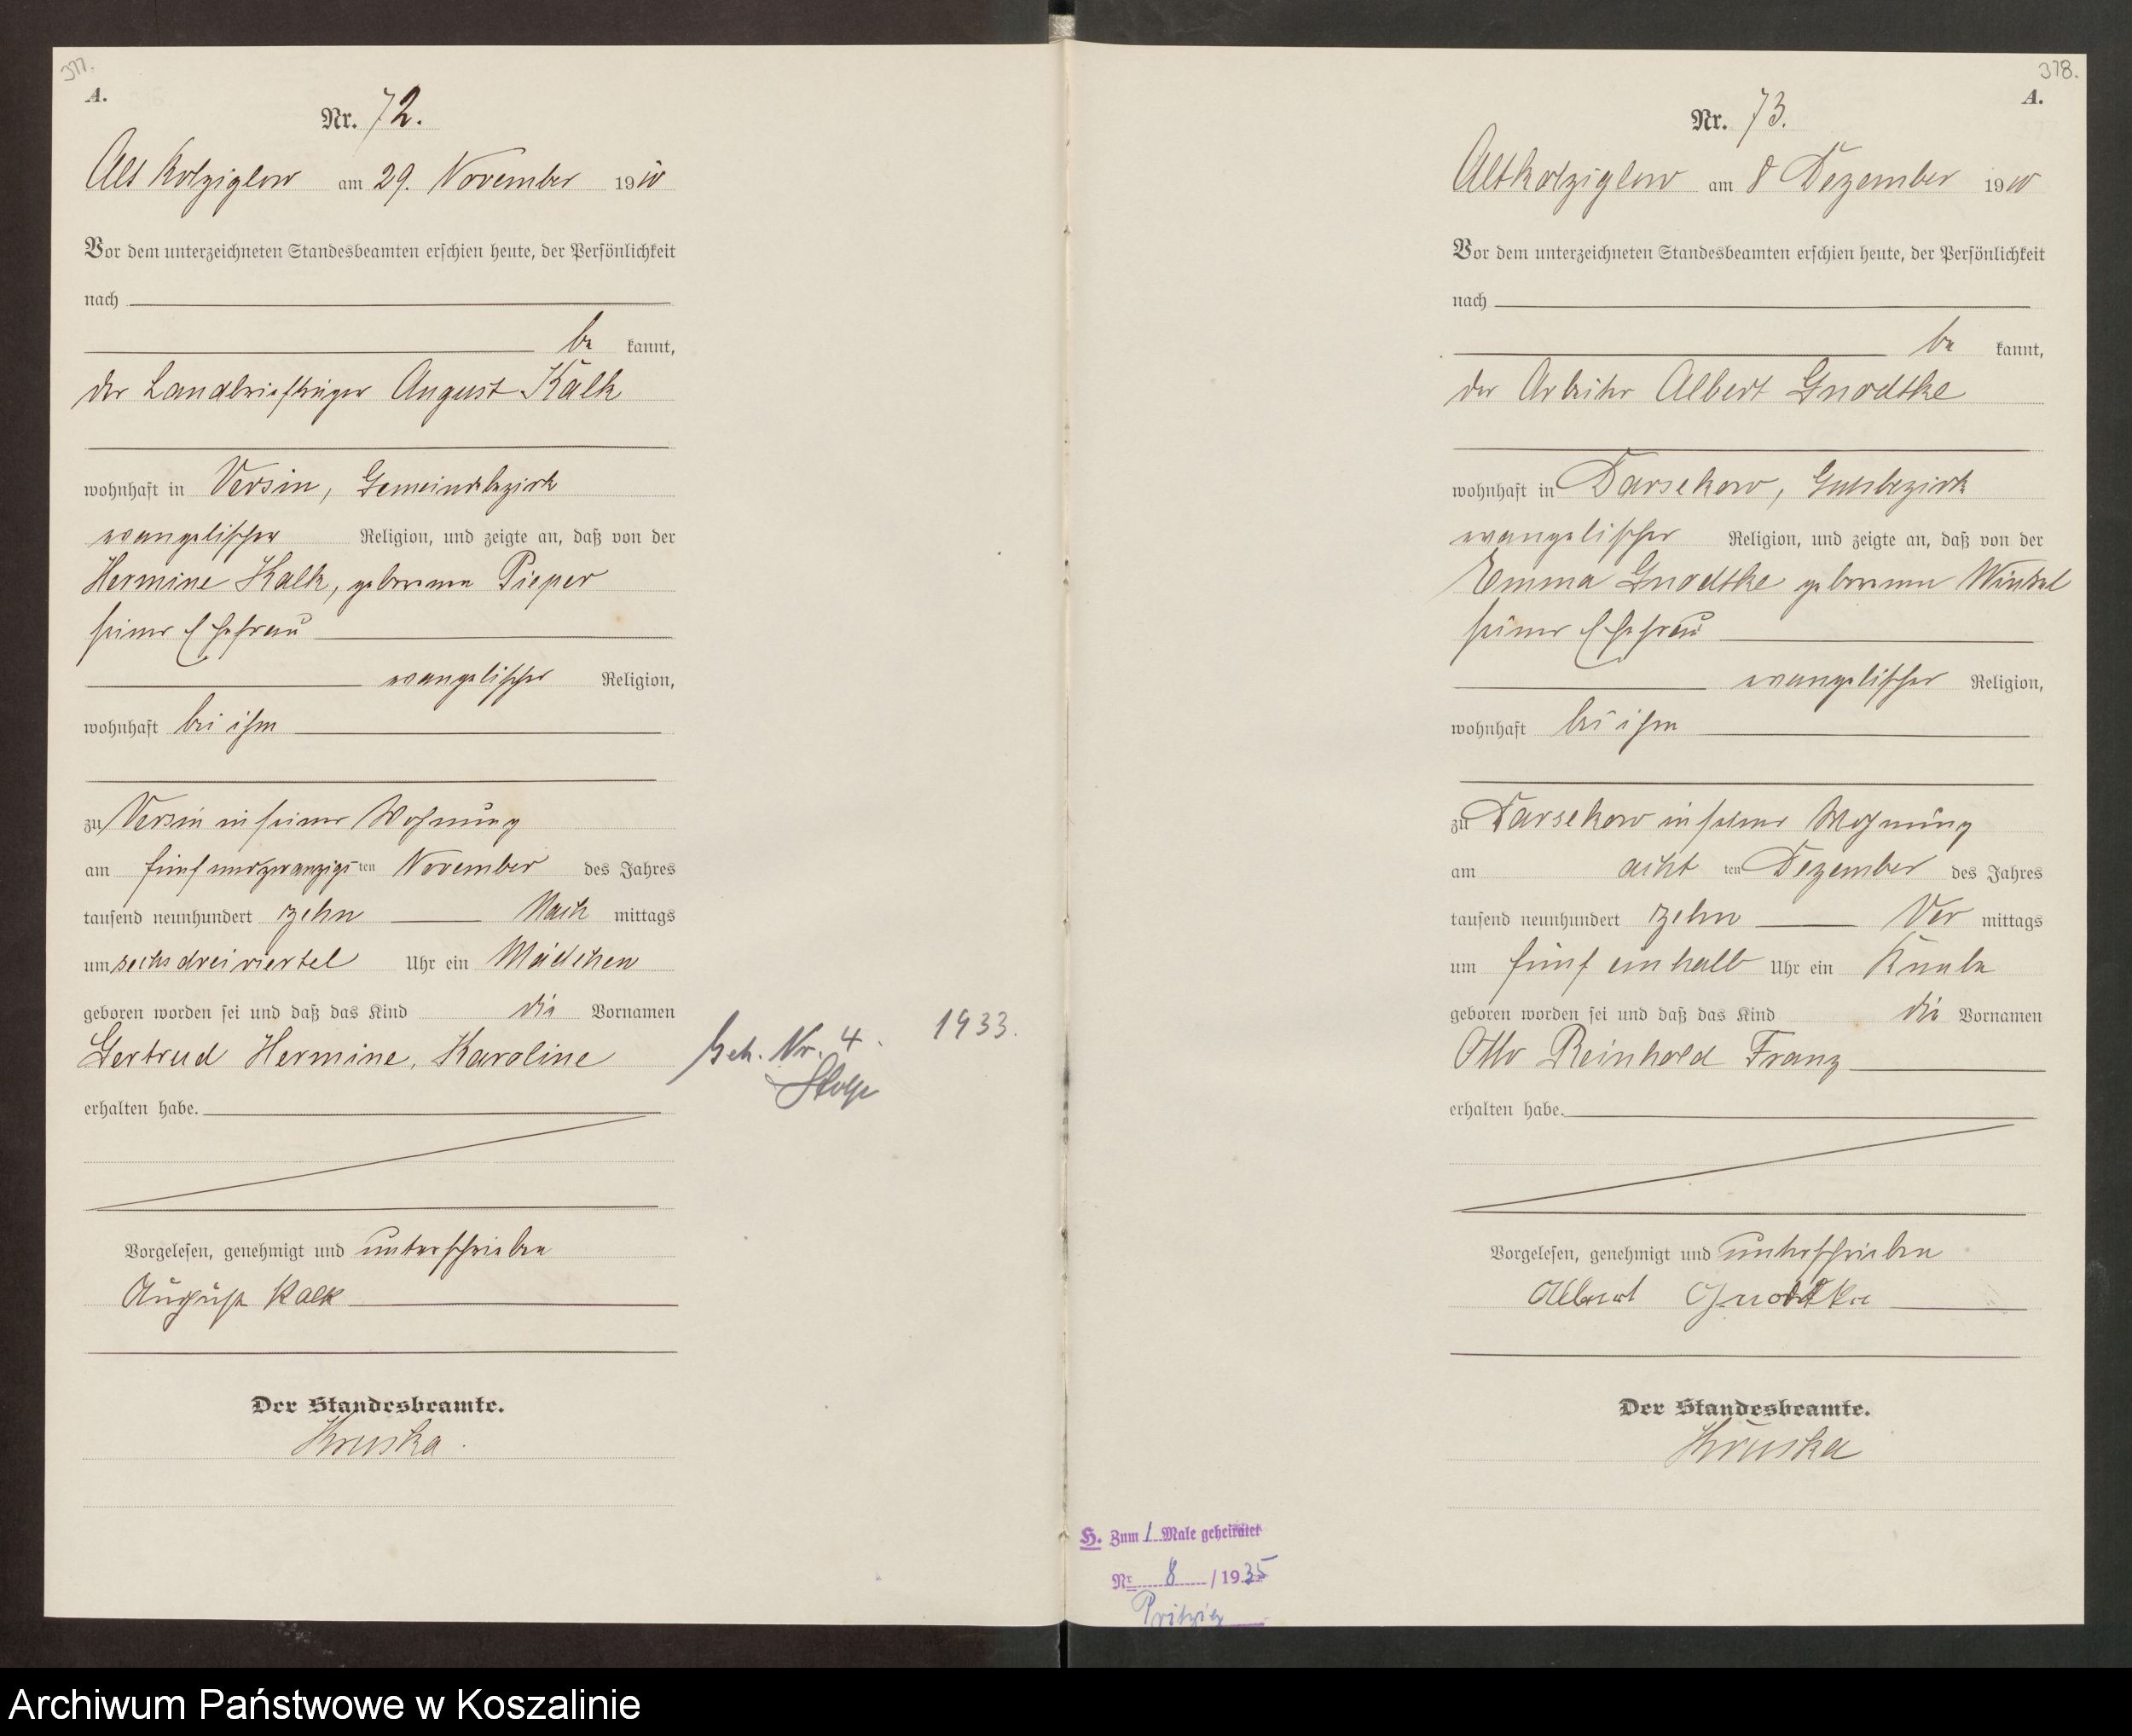 377.
A.
Nr. 72.
Alt Kolziglow am 29. November 1910
Vor dem unterzeichneten Standesbeamten erschien heute, der Persönlichkeit
nach
be kannt,
der Landbriefträger August Kalk
wohnhaft in Versin, Gemeindebezirk
evangelischer Religion, und zeigte an, daß von der
Hermine Kalk, geborenen Pieper
seiner Ehefrau
evangelischer Religion,
wohnhaft bei ihm
zu Versin in seiner Wohnung
am fünfundzwanzigsten November des Jahres
tausend neunhundert zehn Nach mittags
um sechsdreiviertel Uhr ein Mädchen
geboren worden sei und daß das Kind die Vornamen
Gertrud Hermine, Karoline
erhalten habe.
Vorgelesen, genehmigt und unterschrieben
August Kalk
Der Standesbeamte.
Kruska.
Geh. Nr. 4. 1933.
Stolp
378.
A.
Nr. 73.
Altkolziglow am 8 Dezember 1910
Vor dem unterzeichneten Standesbeamten erschien heute, der Persönlichkeit
nach
be kannt,
der Arbeiter Albert Gnodtke
wohnhaft in Darsekow, Gutsbezirk
evangelischer Religion, und zeigte an, daß von der
Emma Gnodtke geborenen
seiner Ehefrau
evangelischer Religion,
wohnhaft bei ihm
zu Darsekow in seiner Wohnung
am acht ten Dezember des Jahres
tausend neunhundert zehn Vor mittags
um fünf einhalb Uhr ein Knabe
geboren worden sei und daß das Kind die Vornamen
Otto Reinhold Franz
erhalten habe.
Vorgelesen, genehmigt und unterschrieben
Albert Gnodtke
Der Standesbeamte.
Kruska
H. Zum 1 Male geheiratet
Nr. 8 / 1935
Pritzig
Archiwum Państwowe w Koszalinie